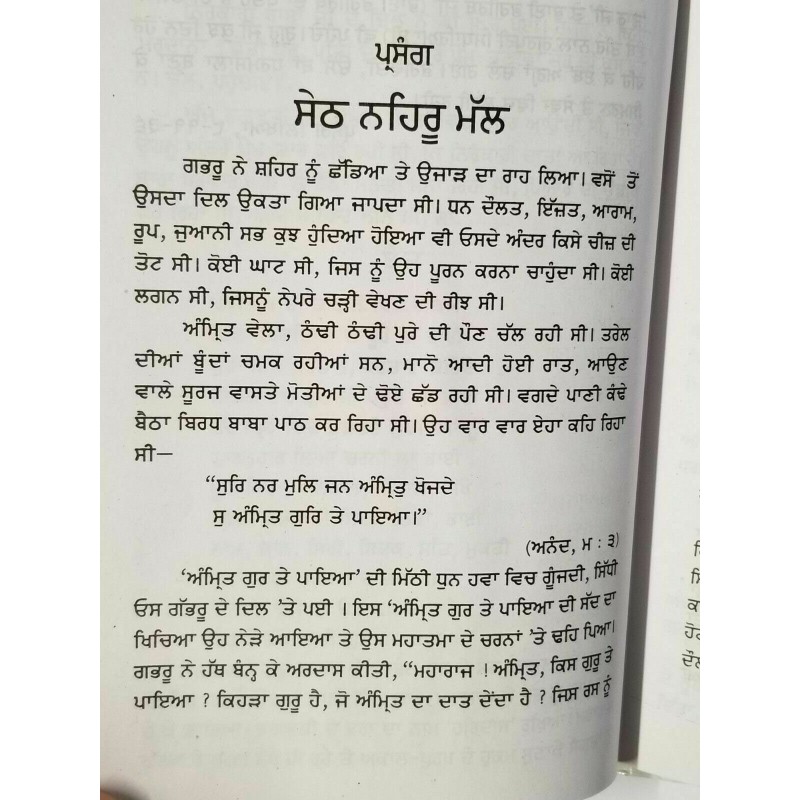 ਪ੍ਰਸੰਗ
ਸੇਠ ਨਹਿਰੂ ਮੱਲ
ਗਭਰੂ ਨੇ ਸ਼ਹਿਰ ਨੂੰ ਛੱਡਿਆ ਤੇ ਉਜਾੜ ਦਾ ਰਾਹ ਲਿਆ। ਵਸੋਂ ਤੋਂ
ਉਸਦਾ ਦਿਲ ਉਕਤਾ ਗਿਆ ਜਾਪਦਾ ਸੀ। ਧਨ ਦੌਲਤ, ਇੱਜ਼ਤ, ਆਰਾਮ,
ਰੂਪ, ਜੁਆਨੀ ਸਭ ਕੁਝ ਹੁੰਦਿਆ ਹੋਇਆ ਵੀ ਓਸਦੇ ਅੰਦਰ ਕਿਸੇ ਚੀਜ਼ ਦੀ
ਤੋਟ ਸੀ। ਕੋਈ ਘਾਟ ਸੀ, ਜਿਸ ਨੂੰ ਉਹ ਪੂਰਨ ਕਰਨਾ ਚਾਹੁੰਦਾ ਸੀ। ਕੋਈ
ਲਗਨ ਸੀ, ਜਿਸਨੂੰ ਨੇਪਰੇ ਚੜ੍ਹੀ ਵੇਖਣ ਦੀ ਰੀਝ ਸੀ।
ਅੰਮ੍ਰਿਤ ਵੇਲਾ, ਠੰਢੀ ਠੰਢੀ ਪੁਰੇ ਦੀ ਪੌਣ ਚੱਲ ਰਹੀ ਸੀ। ਤਰੇਲ
ਦੀਆਂ ਬੂੰਦਾਂ ਚਮਕ ਰਹੀਆਂ ਸਨ, ਮਾਨੋ ਆਦੀ ਹੋਈ ਰਾਤ, ਆਉਣ
ਵਾਲੇ ਸੂਰਜ ਵਾਸਤੇ ਮੋਤੀਆਂ ਦੇ ਢੋਏ ਛੱਡ ਰਹੀ ਸੀ। ਵਗਦੇ ਪਾਣੀ ਕੰਢੇ
ਬੈਠਾ ਬਿਰਧ ਬਾਬਾ ਪਾਠ ਕਰ ਰਿਹਾ ਸੀ। ਉਹ ਵਾਰ ਵਾਰ ਏਹਾ ਕਹਿ ਰਿਹਾ
ਸੀ—
“ਸੁਰਿ ਨਰ ਮੁਲਿ ਜਨ ਅੰਮ੍ਰਿਤੁ ਖੋਜਦੇ
ਸੁ ਅੰਮ੍ਰਿਤ ਗੁਰਿ ਤੇ ਪਾਇਆ।”
(ਅਨੰਦ, ਮ : ੩)
‘ਅੰਮ੍ਰਿਤ ਗੁਰ ਤੇ ਪਾਇਆ’ ਦੀ ਮਿੱਠੀ ਧੁਨ ਹਵਾ ਵਿਚ ਗੂੰਜਦੀ, ਸਿੱਧੀ
ਓਸ ਗੱਭਰੂ ਦੇ ਦਿਲ ’ਤੇ ਪਈ । ਇਸ ‘ਅੰਮ੍ਰਿਤ ਗੁਰ ਤੇ ਪਾਇਆ ਦੀ ਸੱਦ ਦਾ
ਖਿਚਿਆ ਉਹ ਨੇੜੇ ਆਇਆ ਤੇ ਉਸ ਮਹਾਤਮਾ ਦੇ ਚਰਨਾਂ ’ਤੇ ਢਹਿ ਪਿਆ।
ਗਭਰੂ ਨੇ ਹੱਥ ਬੰਨ੍ਹ ਕੇ ਅਰਦਾਸ ਕੀਤੀ, “ਮਹਾਰਾਜ ! ਅੰਮ੍ਰਿਤ, ਕਿਸ ਗੁਰੂ ਤੇ
ਪਾਇਆ ? ਕਿਹੜਾ ਗੁਰੂ ਹੈ, ਜੋ ਅੰਮ੍ਰਿਤ ਦਾ ਦਾਤ ਦੇਂਦਾ ਹੈ ? ਜਿਸ ਰਸ ਨੂੰ